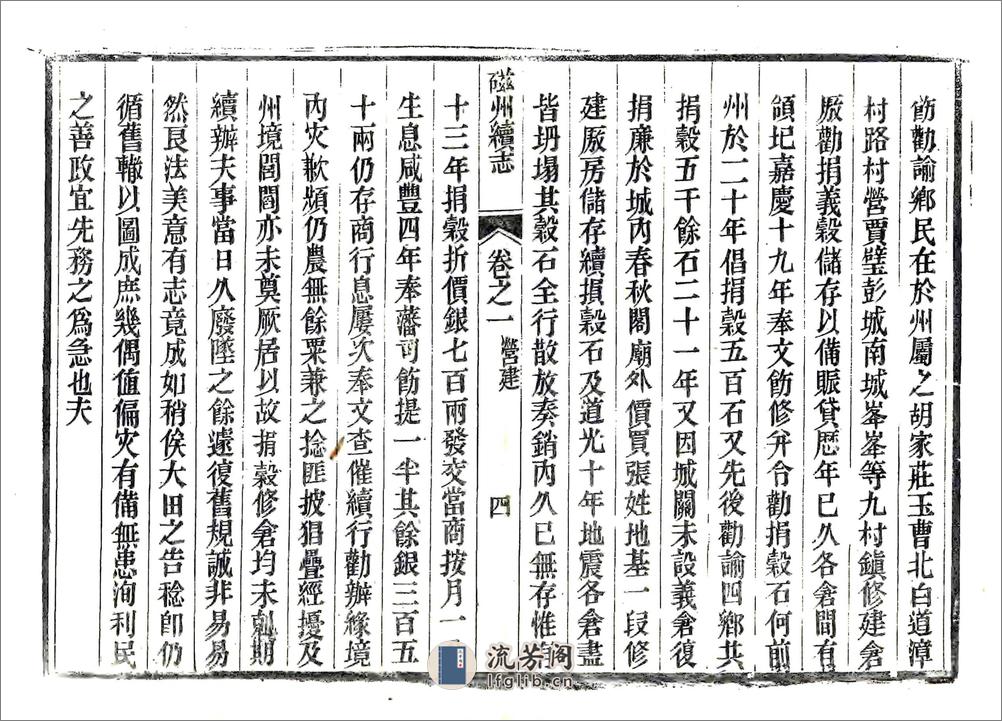 飭勸諭鄉民在於州屬之胡家莊玉曹北白道漳
村路村營賈璧彭城南城峯峯等九村鎭修建倉
厫勸捐義穀儲存以備賑貸歷年已久各倉間有
頽圮嘉慶十九年奉文飭修幷令勸捐穀石何前
州於二十年倡捐穀五百石又先後勸諭四鄉共
捐穀五千餘石二十一年又因城關未設義倉復
捐廉於城內春秋閣廟外價買張姓地基一段修
建厫房儲存續捐穀石及道光十年地震各倉盡
皆坍塌其穀石全行散放奏銷內久已無存惟
磁州續志
卷之一 營建
四
十三年捐穀折價銀七百兩發交當商按月一
生息咸豐四年奉藩司飭提一半其餘銀三百五
十兩仍存商行息屢次奉文查催續行勸辦緣境
內灾歉頻仍農無餘粟兼之捻匪披猖疊經擾及
州境閭閻亦未奠厥居以故捐穀修倉均未剋期
續辦夫事當日久廢墜之餘遠復舊規誠非易易
然良法美意有志竟成如稍俟大田之告稔卽仍
循舊轍以圖成庶幾偶値偏灾有備無患洵利民
之善政宜先務之爲急也夫
流芳閣
lfglib.cn